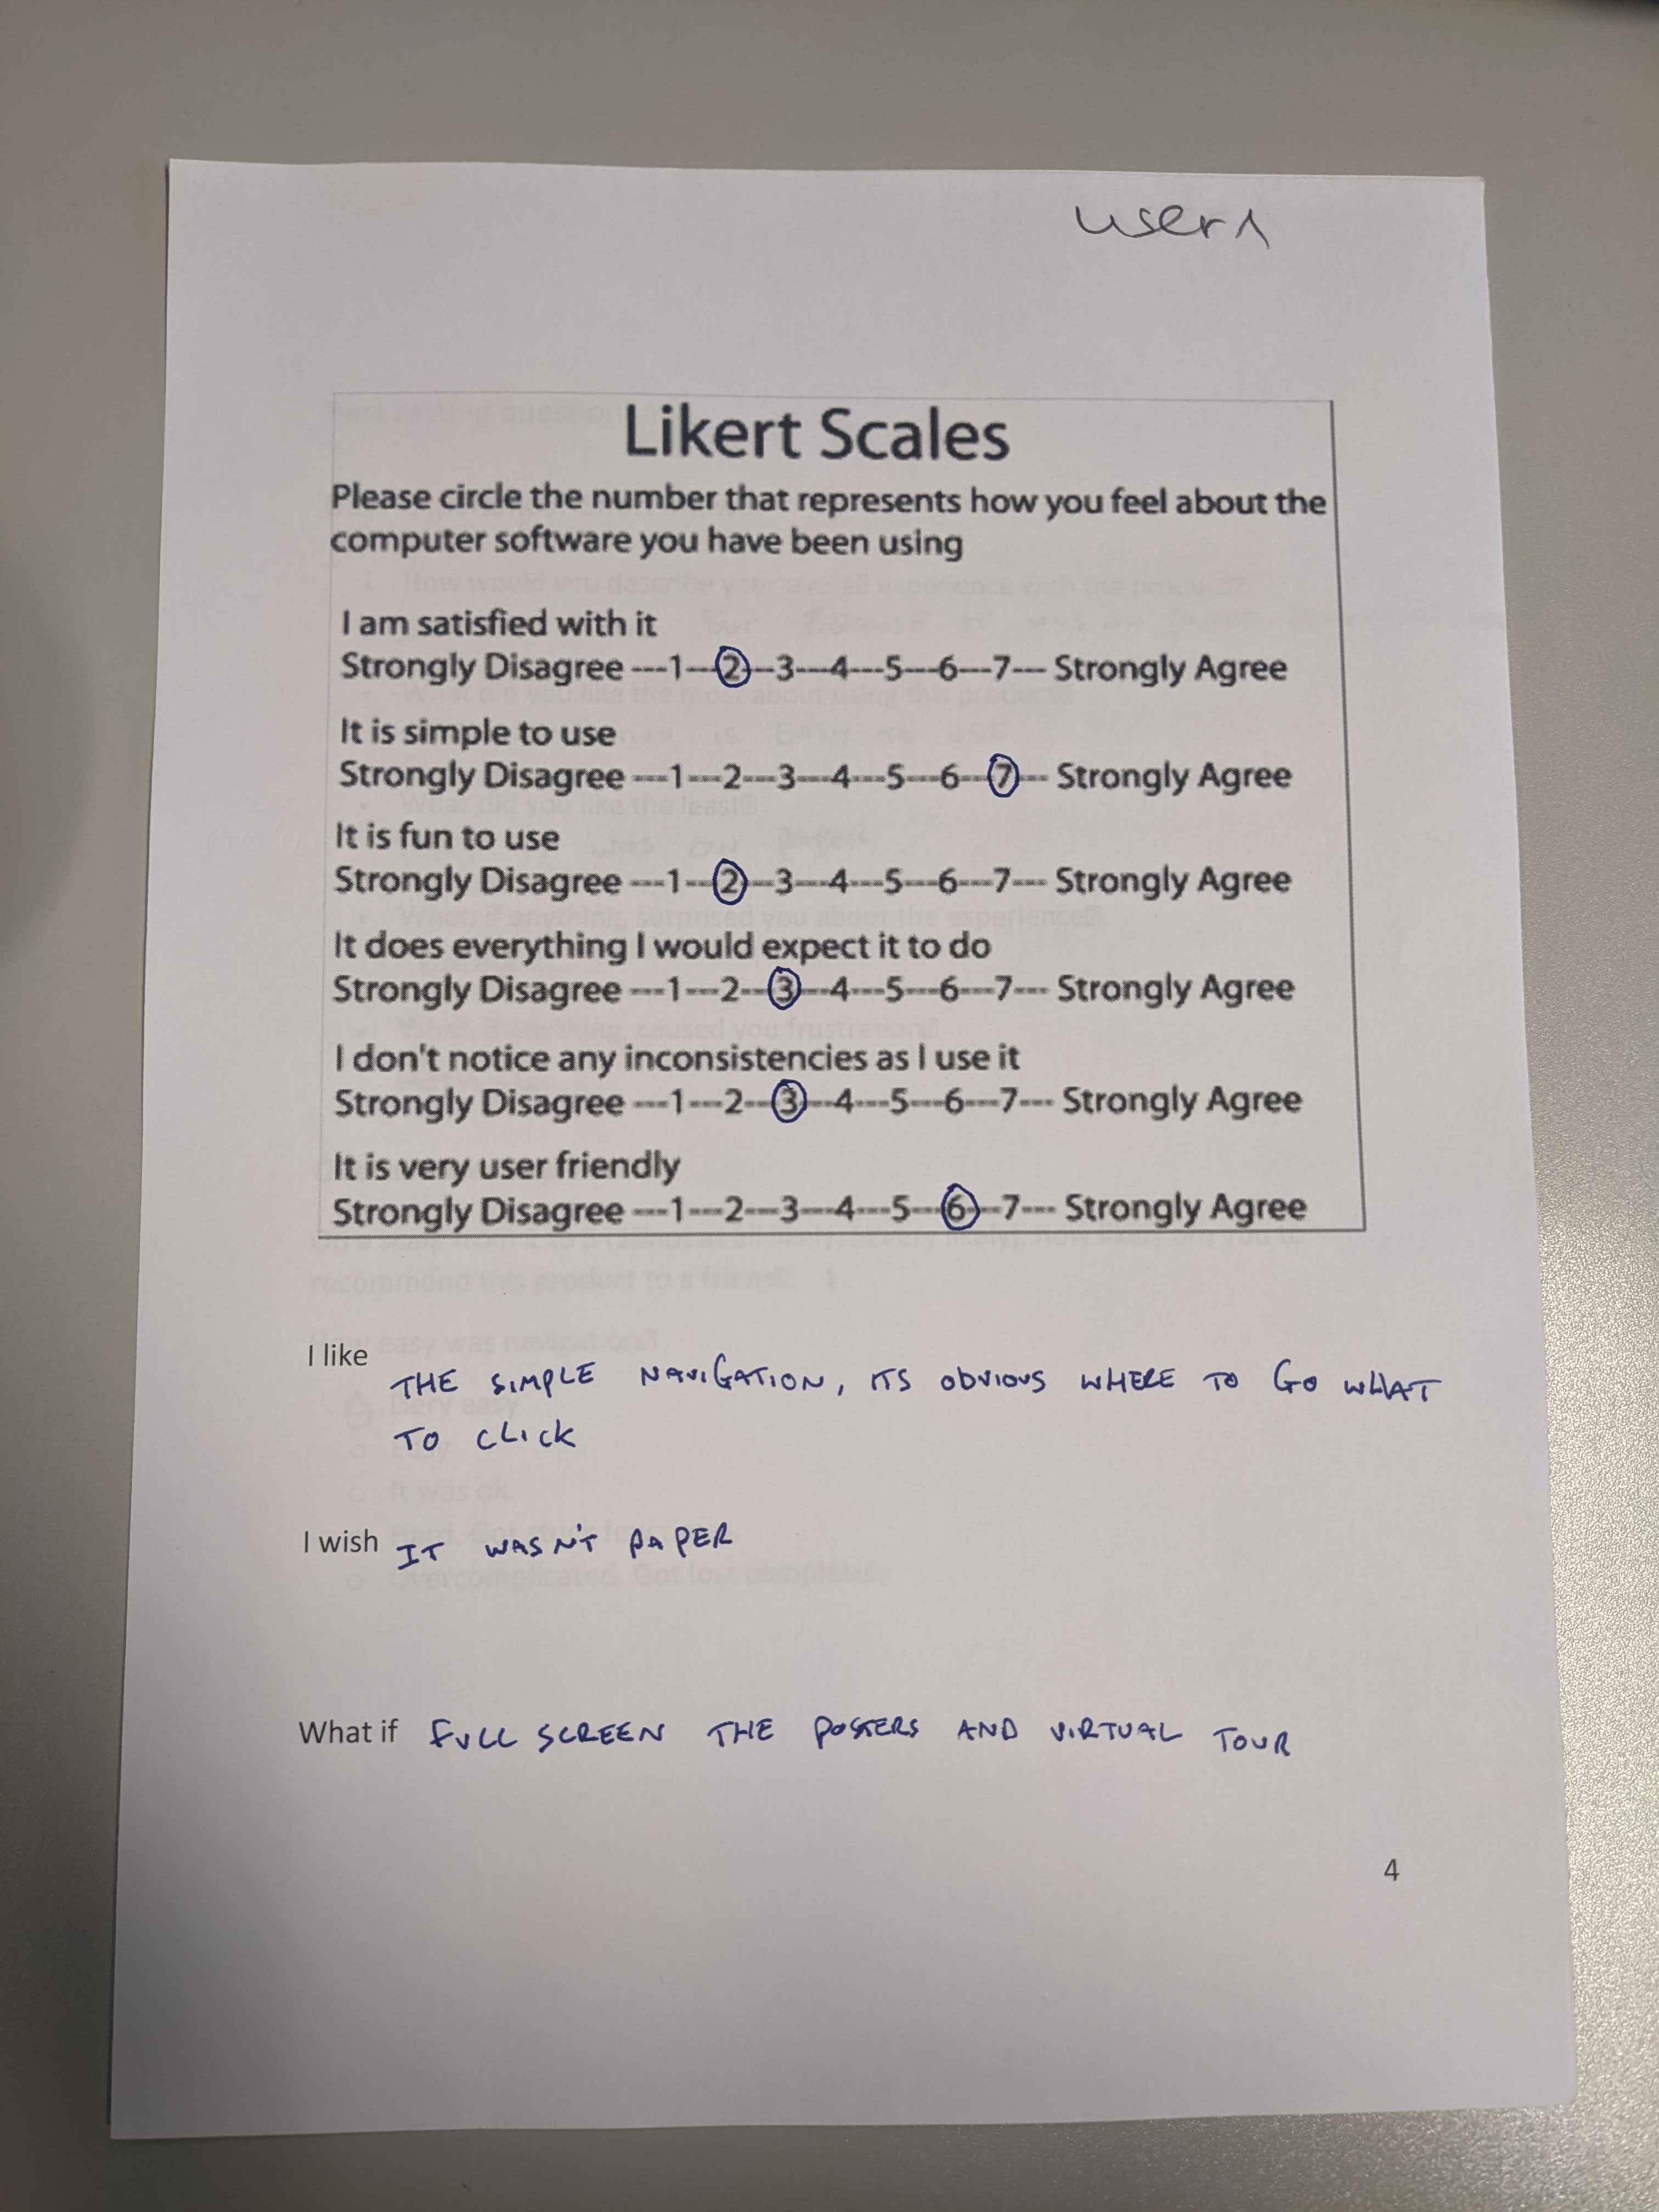 user1
Likert Scales
Please circle the number that represents how you feel about the
computer software you have been using
I am satisfied with it
Strongly Disagree ---1---2---3---4---5---6---7--- Strongly Agree
It is simple to use
Strongly Disagree ---1---2---3---4---5---6---7--- Strongly Agree
It is fun to use
Strongly Disagree ---1---2---3---4---5---6---7--- Strongly Agree
It does everything I would expect it to do
Strongly Disagree ---1---2---3---4---5---6---7--- Strongly Agree
I don't notice any inconsistencies as I use it
Strongly Disagree ---1---2---3---4---5---6---7--- Strongly Agree
It is very user friendly
Strongly Disagree ---1---2---3---4---5---6---7--- Strongly Agree
I like THE SIMPLE NAVIGATION, ITS OBVIOUS WHERE TO GO WHAT
TO CLICK
I wish IT WASN'T PAPER
What if FULL SCREEN THE POSTERS AND VIRTUAL TOUR
4